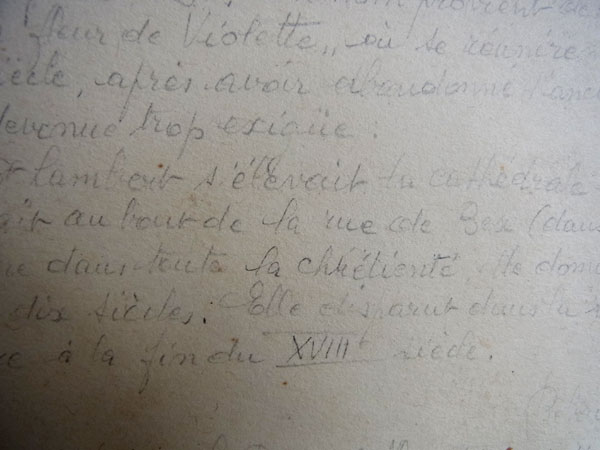 nom provient de
fleur de Violette,, où se réunire
iècle, après avoir abandonné l'anc
devenue trop exigüe:
t Lambert s'élevait la cathédrale
ait au bout de la rue de Bex (dans
ne dans toute la chrétienté. Ile dom
dix siècles: Elle disparut dans la
e à la fin du XVIIIe siècle.